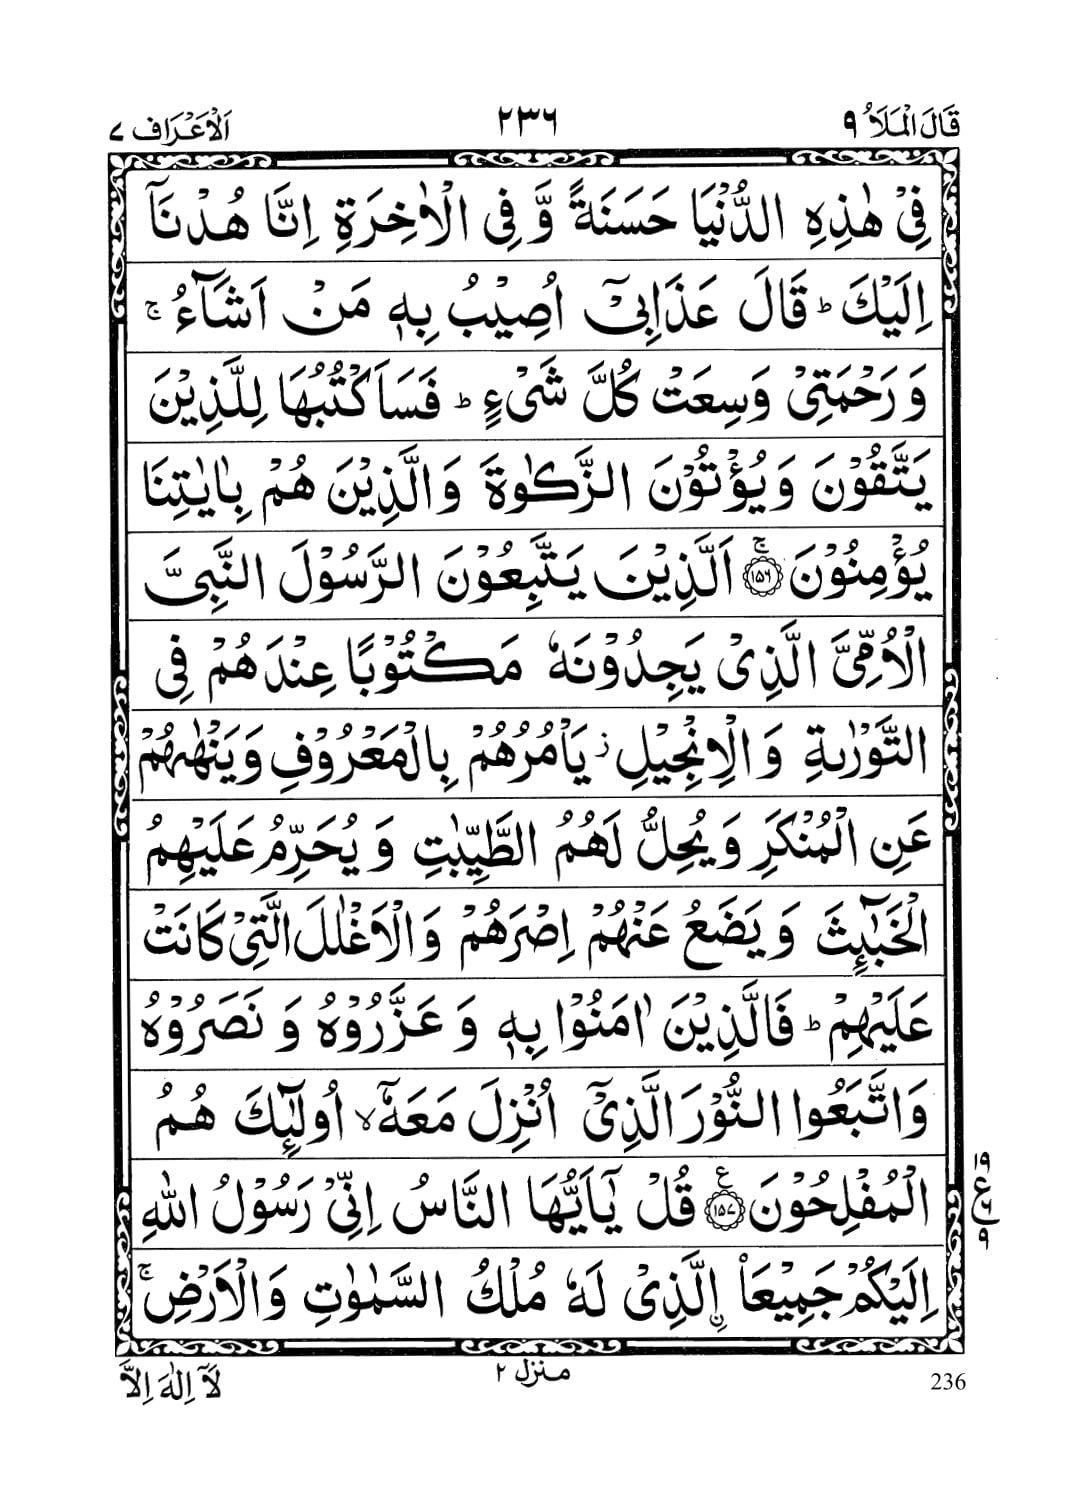 قَالَ الْمَلَاُ ٩ ٢٣٦ اَلْاَعْرَاف ٧
فِيْ هٰذِهِ الدُّنْيَا حَسَنَةً وَّ فِي الْاٰخِرَةِ اِنَّا هُدْنَاۤ
اِلَيْكَ ؕ قَالَ عَذَابِيْۤ اُصِيْبُ بِهٖ مَنْ اَشَآءُ ۚ
وَ رَحْمَتِيْ وَسِعَتْ كُلَّ شَيْءٍ ؕ فَسَاَكْتُبُهَا لِلَّذِيْنَ
يَتَّقُوْنَ وَ يُؤْتُوْنَ الزَّكٰوةَ وَ الَّذِيْنَ هُمْ بِاٰيٰتِنَا
يُؤْمِنُوْنَ ۚ ﴿١٥٦﴾ اَلَّذِيْنَ يَتَّبِعُوْنَ الرَّسُوْلَ النَّبِيَّ
الْاُمِّيَّ الَّذِيْ يَجِدُوْنَهٗ مَكْتُوْبًا عِنْدَهُمْ فِي
التَّوْرٰىةِ وَ الْاِنْجِيْلِ ؗ يَاْمُرُهُمْ بِالْمَعْرُوْفِ وَ يَنْهٰىهُمْ
عَنِ الْمُنْكَرِ وَ يُحِلُّ لَهُمُ الطَّيِّبٰتِ وَ يُحَرِّمُ عَلَيْهِمُ
الْخَبٰٓىِٕثَ وَ يَضَعُ عَنْهُمْ اِصْرَهُمْ وَ الْاَغْلٰلَ الَّتِيْ كَانَتْ
عَلَيْهِمْ ؕ فَالَّذِيْنَ اٰمَنُوْا بِهٖ وَ عَزَّرُوْهُ وَ نَصَرُوْهُ
وَ اتَّبَعُوا النُّوْرَ الَّذِيْۤ اُنْزِلَ مَعَهٗۤ ۙ اُولٰٓىِٕكَ هُمُ
الْمُفْلِحُوْنَ ﴿١٥٧﴾ ع قُلْ يٰۤاَيُّهَا النَّاسُ اِنِّيْ رَسُوْلُ اللّٰهِ
اِلَيْكُمْ جَمِيْعَا ࣙالَّذِيْ لَهٗ مُلْكُ السَّمٰوٰتِ وَ الْاَرْضِ ۚ
١٩
ع ٦
٩
لَاۤ اِلٰهَ اِلَّا منزل ٢ 236